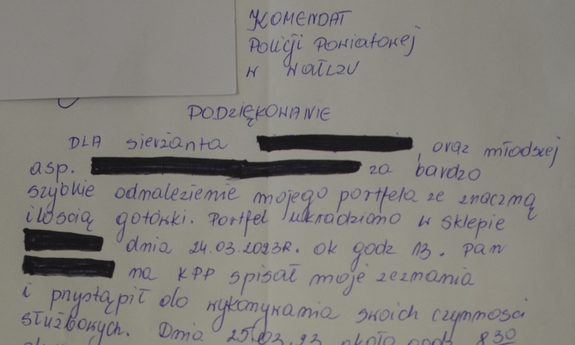 KOMENDAT
POLICJI POWIATOWEJ
W WAŁCZU
PODZIĘKOWANIE
DLA sierżanta oraz młodszej
asp. za bardzo
szybkie odnalezienie mojego portfela ze znaczną
ilością gotówki. Portfel ukradziono w sklepie
dnia 24.03.2023R. ok godz 13. Pan
na KPP spisał moje zeznania
i przystąpił do wykonywania swoich czynności
służbowych. Dnia 25.03.23 około godz 8 30